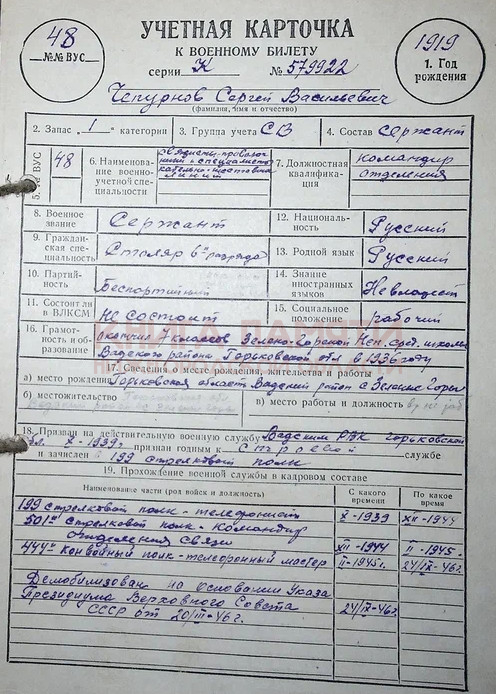 48
№№ ВУС
УЧЕТНАЯ КАРТОЧКА
К ВОЕННОМУ БИЛЕТУ
серии К № 579922
1919
1. Год
рождения
Чепурнов Сергей Васильевич
(фамилия, имя и отчество)
2. Запас 1 категории
3. Группа учета СВ
4. Состав сержант
5. № ВУС
48
6. Наименование военно-учетной специальности
7. Должностная квалификация
командир отделения
8. Военное звание
Сержант
12. Национальность
Русский
9. Гражданская специальность
Столяр 6го разряда
13. Родной язык
Русский
10. Партийность
Беспартийный
14. Знание иностранных языков
Не владеет
11. Состоит ли в ВЛКСМ
Не состоит
15. Социальное положение
рабочий
КНИГА ПАМЯТИ
16. Грамотность и образование
окончил 7 классов Зелено-Горской Неп. сред. школы
Вадского района Горьковской обл в 1936 году
17. Сведения о месте рождения, жительства и работы
а) место рождения Горьковская область Вадский район с Зеленые Горы
б) местожительство
в) место работы и должность
18. Призван на действительную военную службу Вадским РВК Горьковской
обл. X-1939г. признан годным к строевой службе
и зачислен в 199 стрелковый полк
19. Прохождение военной службы в кадровом составе
Наименование части (род войск и должность)
С какого времени
По какое время
199 стрелковый полк - телефонист
X-1939
XII-1944
501й стрелковый полк - командир
отделения связи
XII-1944
II-1945.
444й конвойный полк - телефонный мастер
II-1945г.
24/IX-46г.
Демобилизован на основании Указа
Президиума Верховного Совета
СССР от 20/III-46г.
24/IX-46г.